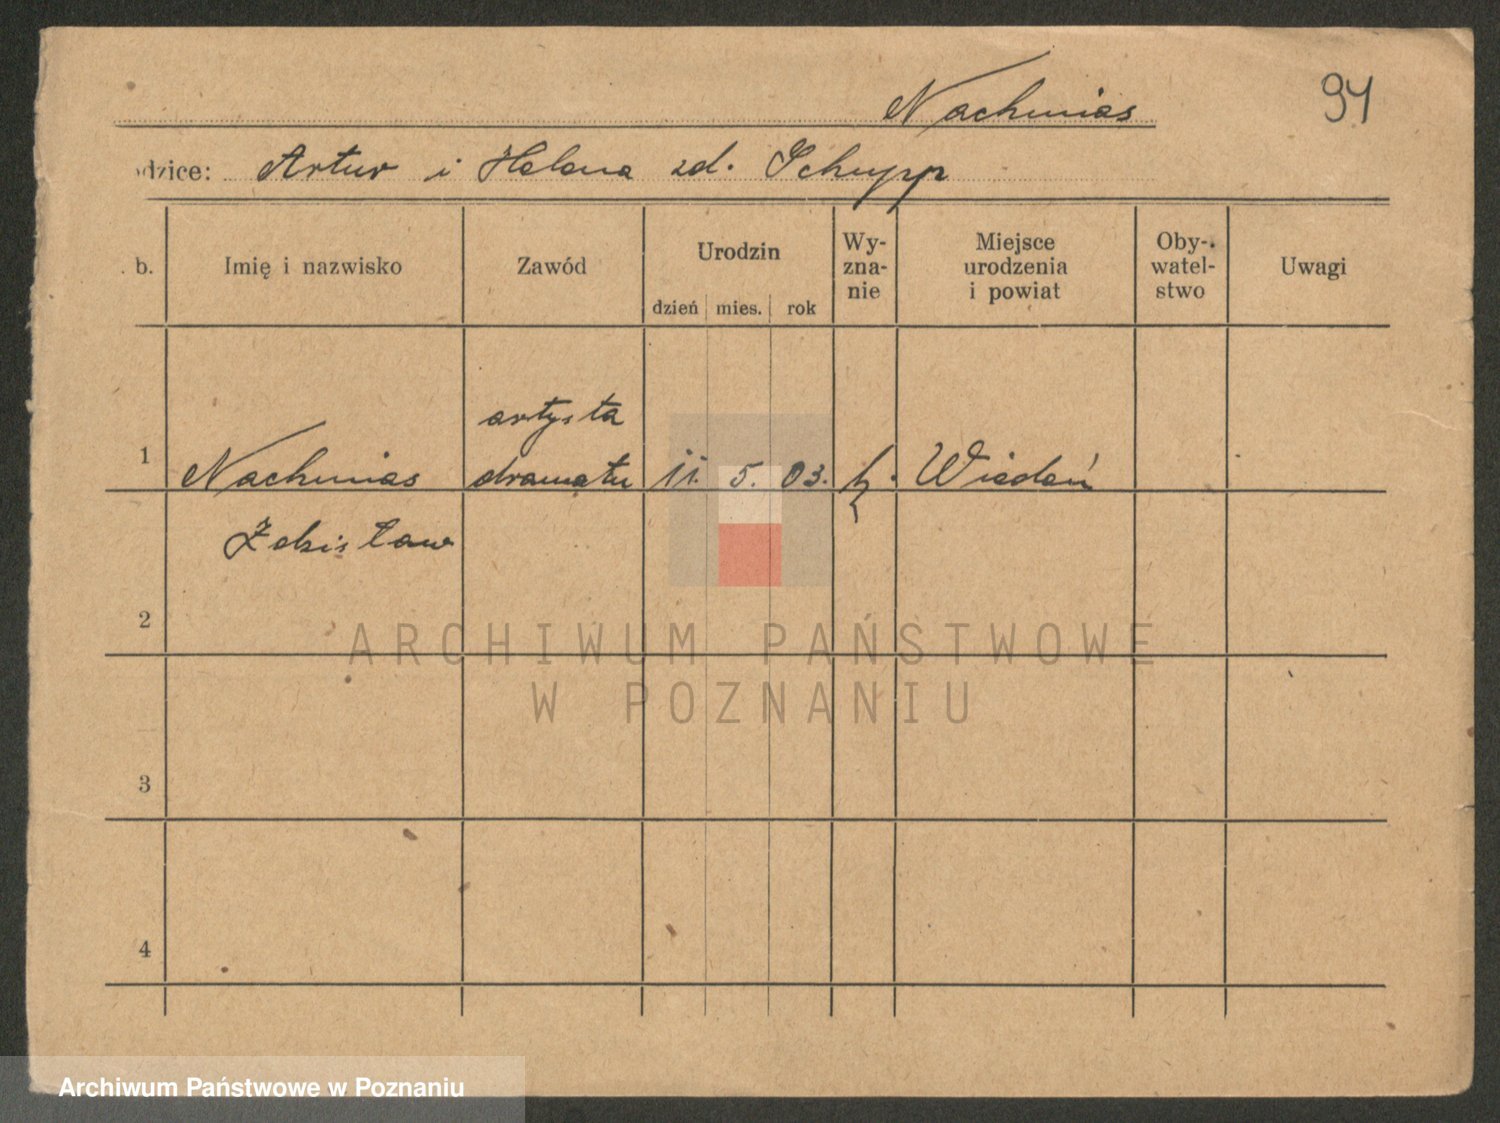 Nachmias
94
odzice: Artur i Helena zd. Schupp
. b.
Imię i nazwisko
Zawód
Urodzin
dzień mies. rok
Wy-
zna-
nie
Miejsce
urodzenia
i powiat
Oby-
watel-
stwo
Uwagi
1
Nachmias
Zdzisław
artysta
dramatu
11. 5. 03.
Wiedeń
2
3
4
ARCHIWUM PAŃSTWOWE
W POZNANIU
Archiwum Państwowe w Poznaniu